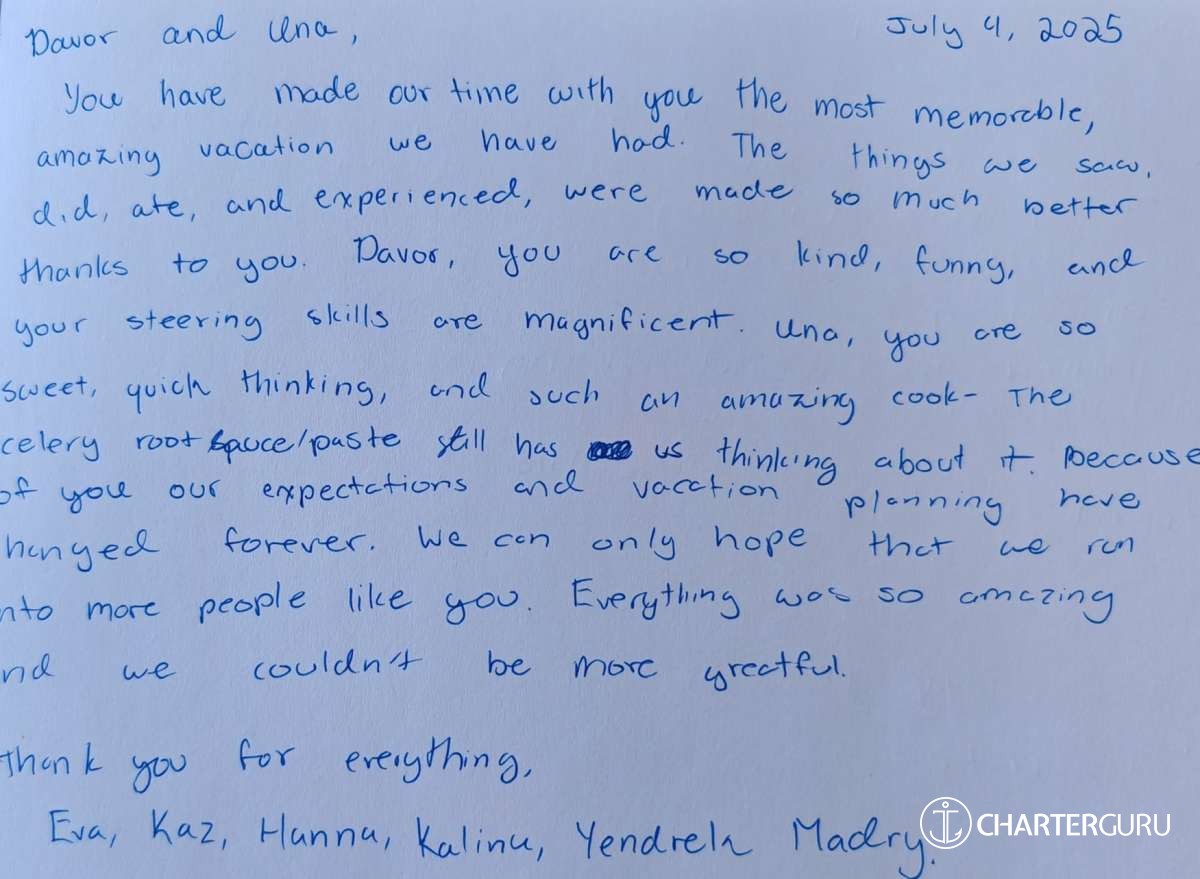 Davor and Una,
July 4, 2025
You have made our time with you the most memorable,
amazing vacation we have had. The things we saw,
did, ate, and experienced, were made so much better
thanks to you. Davor, you are so kind, funny, and
your steering skills are magnificent. Una, you are so
sweet, quick thinking, and such an amazing cook- The
celery root sauce/paste still has us thinking about it. Because
of you our expectations and vacation planning have
hanged forever. We can only hope that we run
nto more people like you. Everything was so amazing
nd we couldn't be more greatful.
Thank you for everything,
Eva, Kaz, Hanna, Kalina, Yendrek Madry.
CHARTERGURU